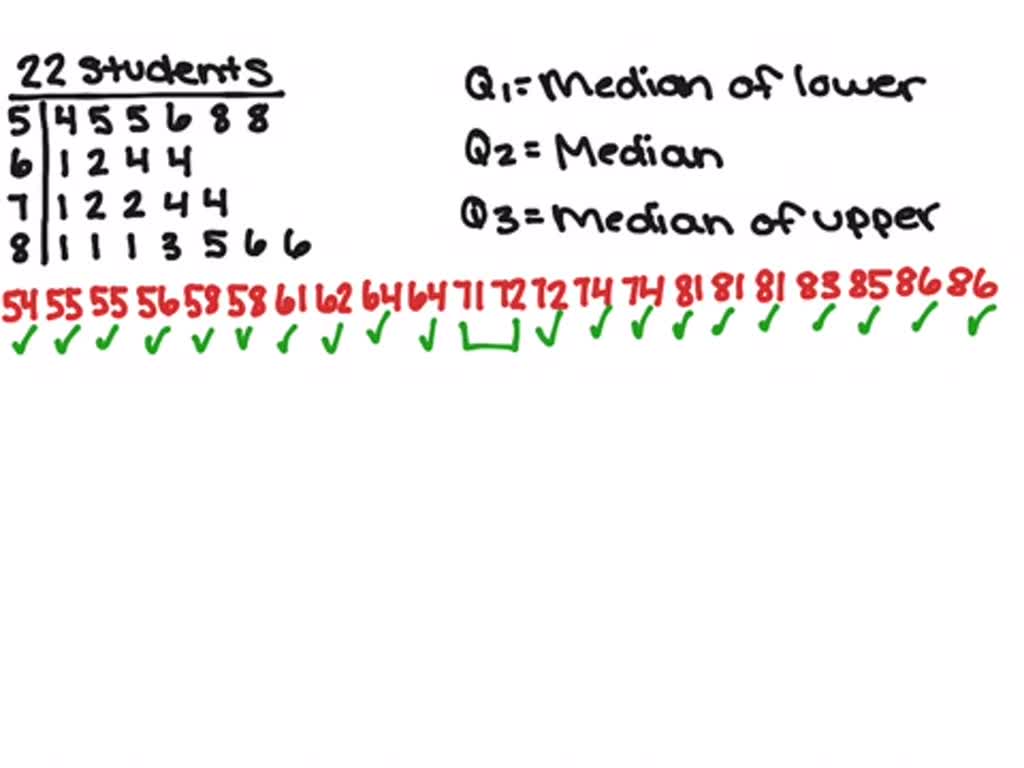 22 students
5 | 4 5 5 6 8 8
6 | 1 2 4 4
7 | 1 2 2 4 4
8 | 1 1 1 3 5 6 6
Q1=Median of lower
Q2= Median
Q3=Median of upper
54 55 55 56 58 58 61 62 64 64 71 72 72 74 74 81 81 81 83 85 86 86